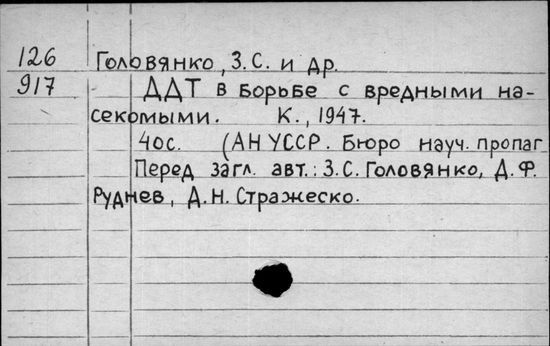 126 Головянко, З.С. и др.
917 ДДТ в борьбе с вредными на-
секомыми. К., 1947.
40с. (АН УССР. Бюро науч. пропаг
Перед загл. авт.: З.С. Головянко, Д.Ф.
Руднев, Д.Н. Стражеско.